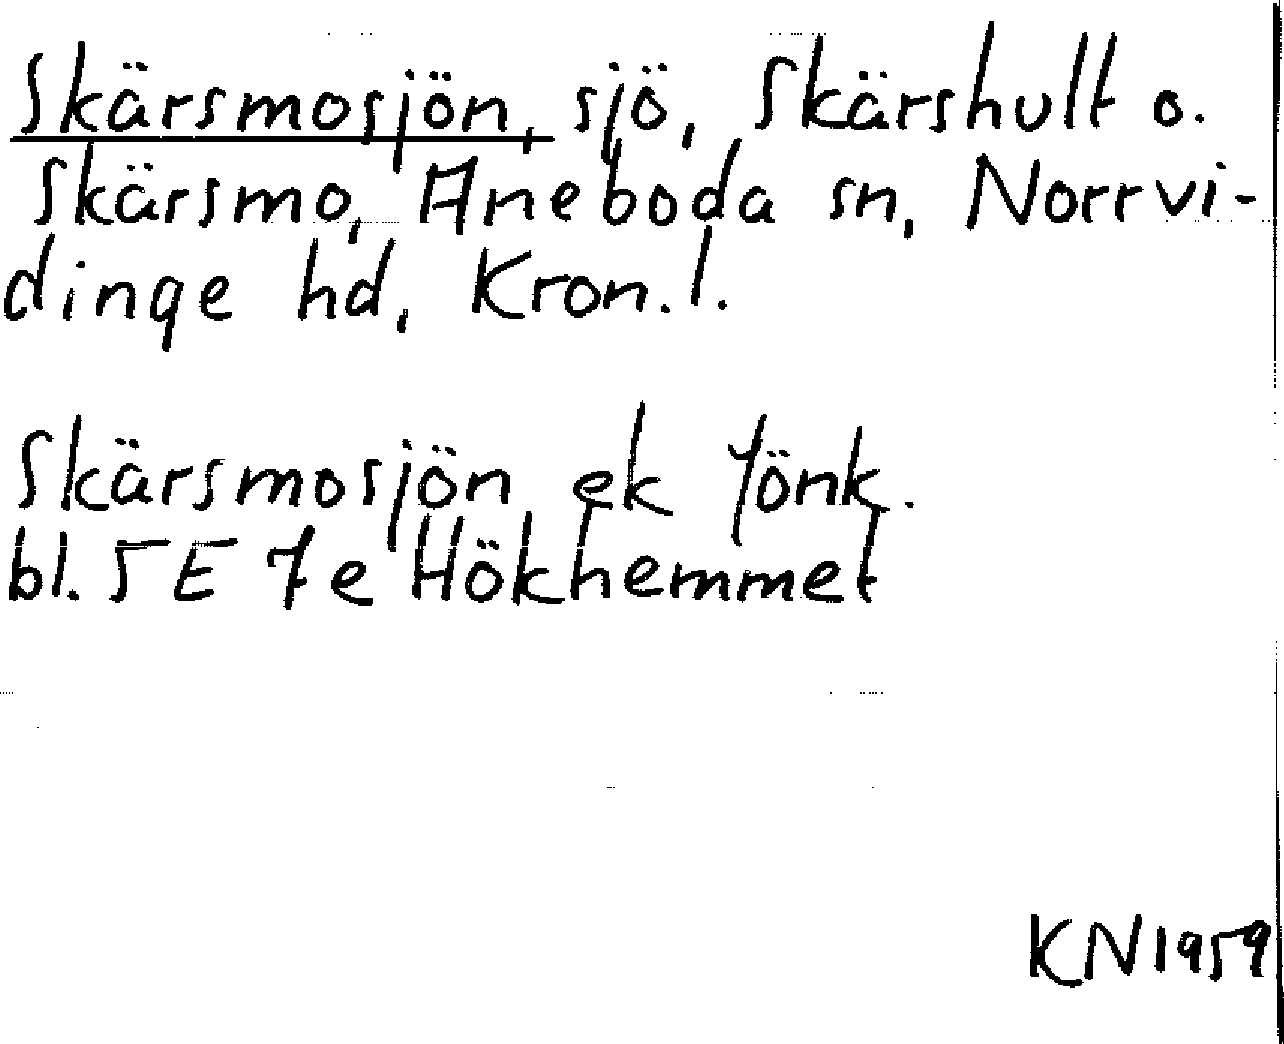 Skärsmosjön, sjö, Skärshult o.
Skärsmo, Aneboda sn, Norrvi-
dinge hd, Kron. l.
Skärsmosjön ek Jönk.
bl. 5 E 7e Hökhemmet
KN1959